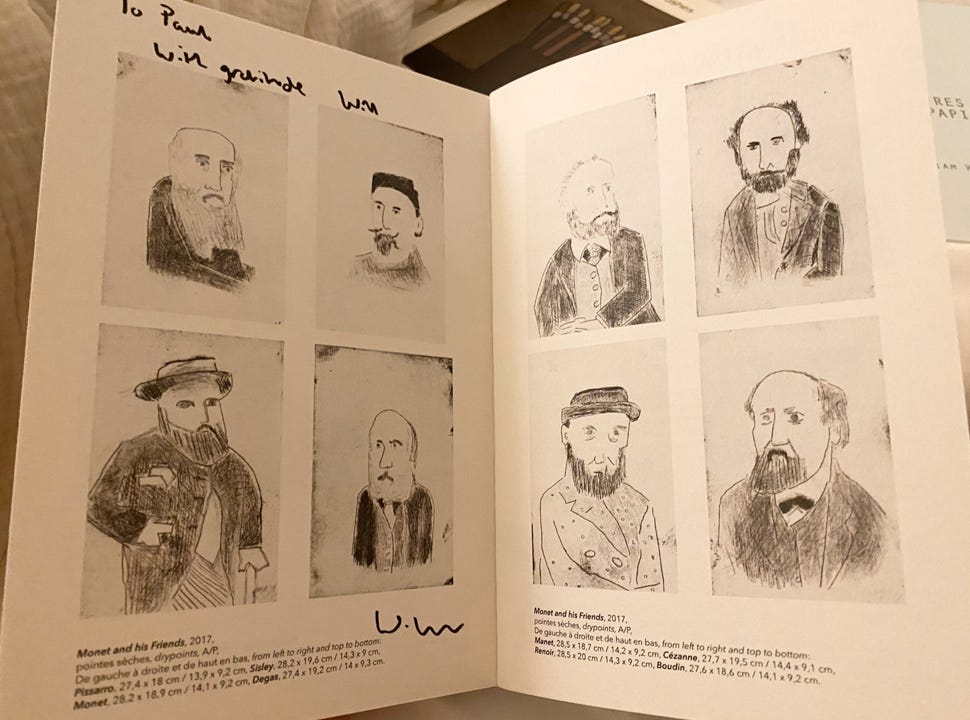 To Paul
With gratitude Will
Monet and his Friends, 2017,
pointes sèches, drypoints, A/P,
De gauche à droite et de haut en bas, from left to right and top to bottom:
Pissarro, 27,4 x 18 cm / 13,9 x 9,2 cm, Sisley, 28,2 x 19,6 cm / 14,3 x 9 cm,
Monet, 28,2 x 18,9 cm / 14,1 x 9,2 cm, Degas, 27,4 x 19,2 cm / 14 x 9,3 cm.
Monet and his Friends, 2017,
pointes sèches, drypoints, A/P,
De gauche à droite et de haut en bas, from left to right and top to bottom:
Manet, 28,5 x 18,7 cm / 14,2 x 9,2 cm, Cézanne, 27,7 x 19,5 cm / 14,4 x 9,1 cm,
Renoir, 28,5 x 20 cm / 14,3 x 9,2 cm, Boudin, 27,6 x 18,6 cm / 14,1 x 9,2 cm.